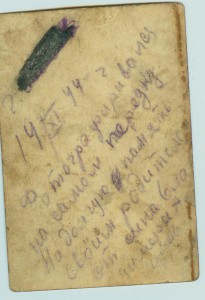 19 XI 44 г
Фотографировался
на самом передку
На долгую память
своим родителям
от сына